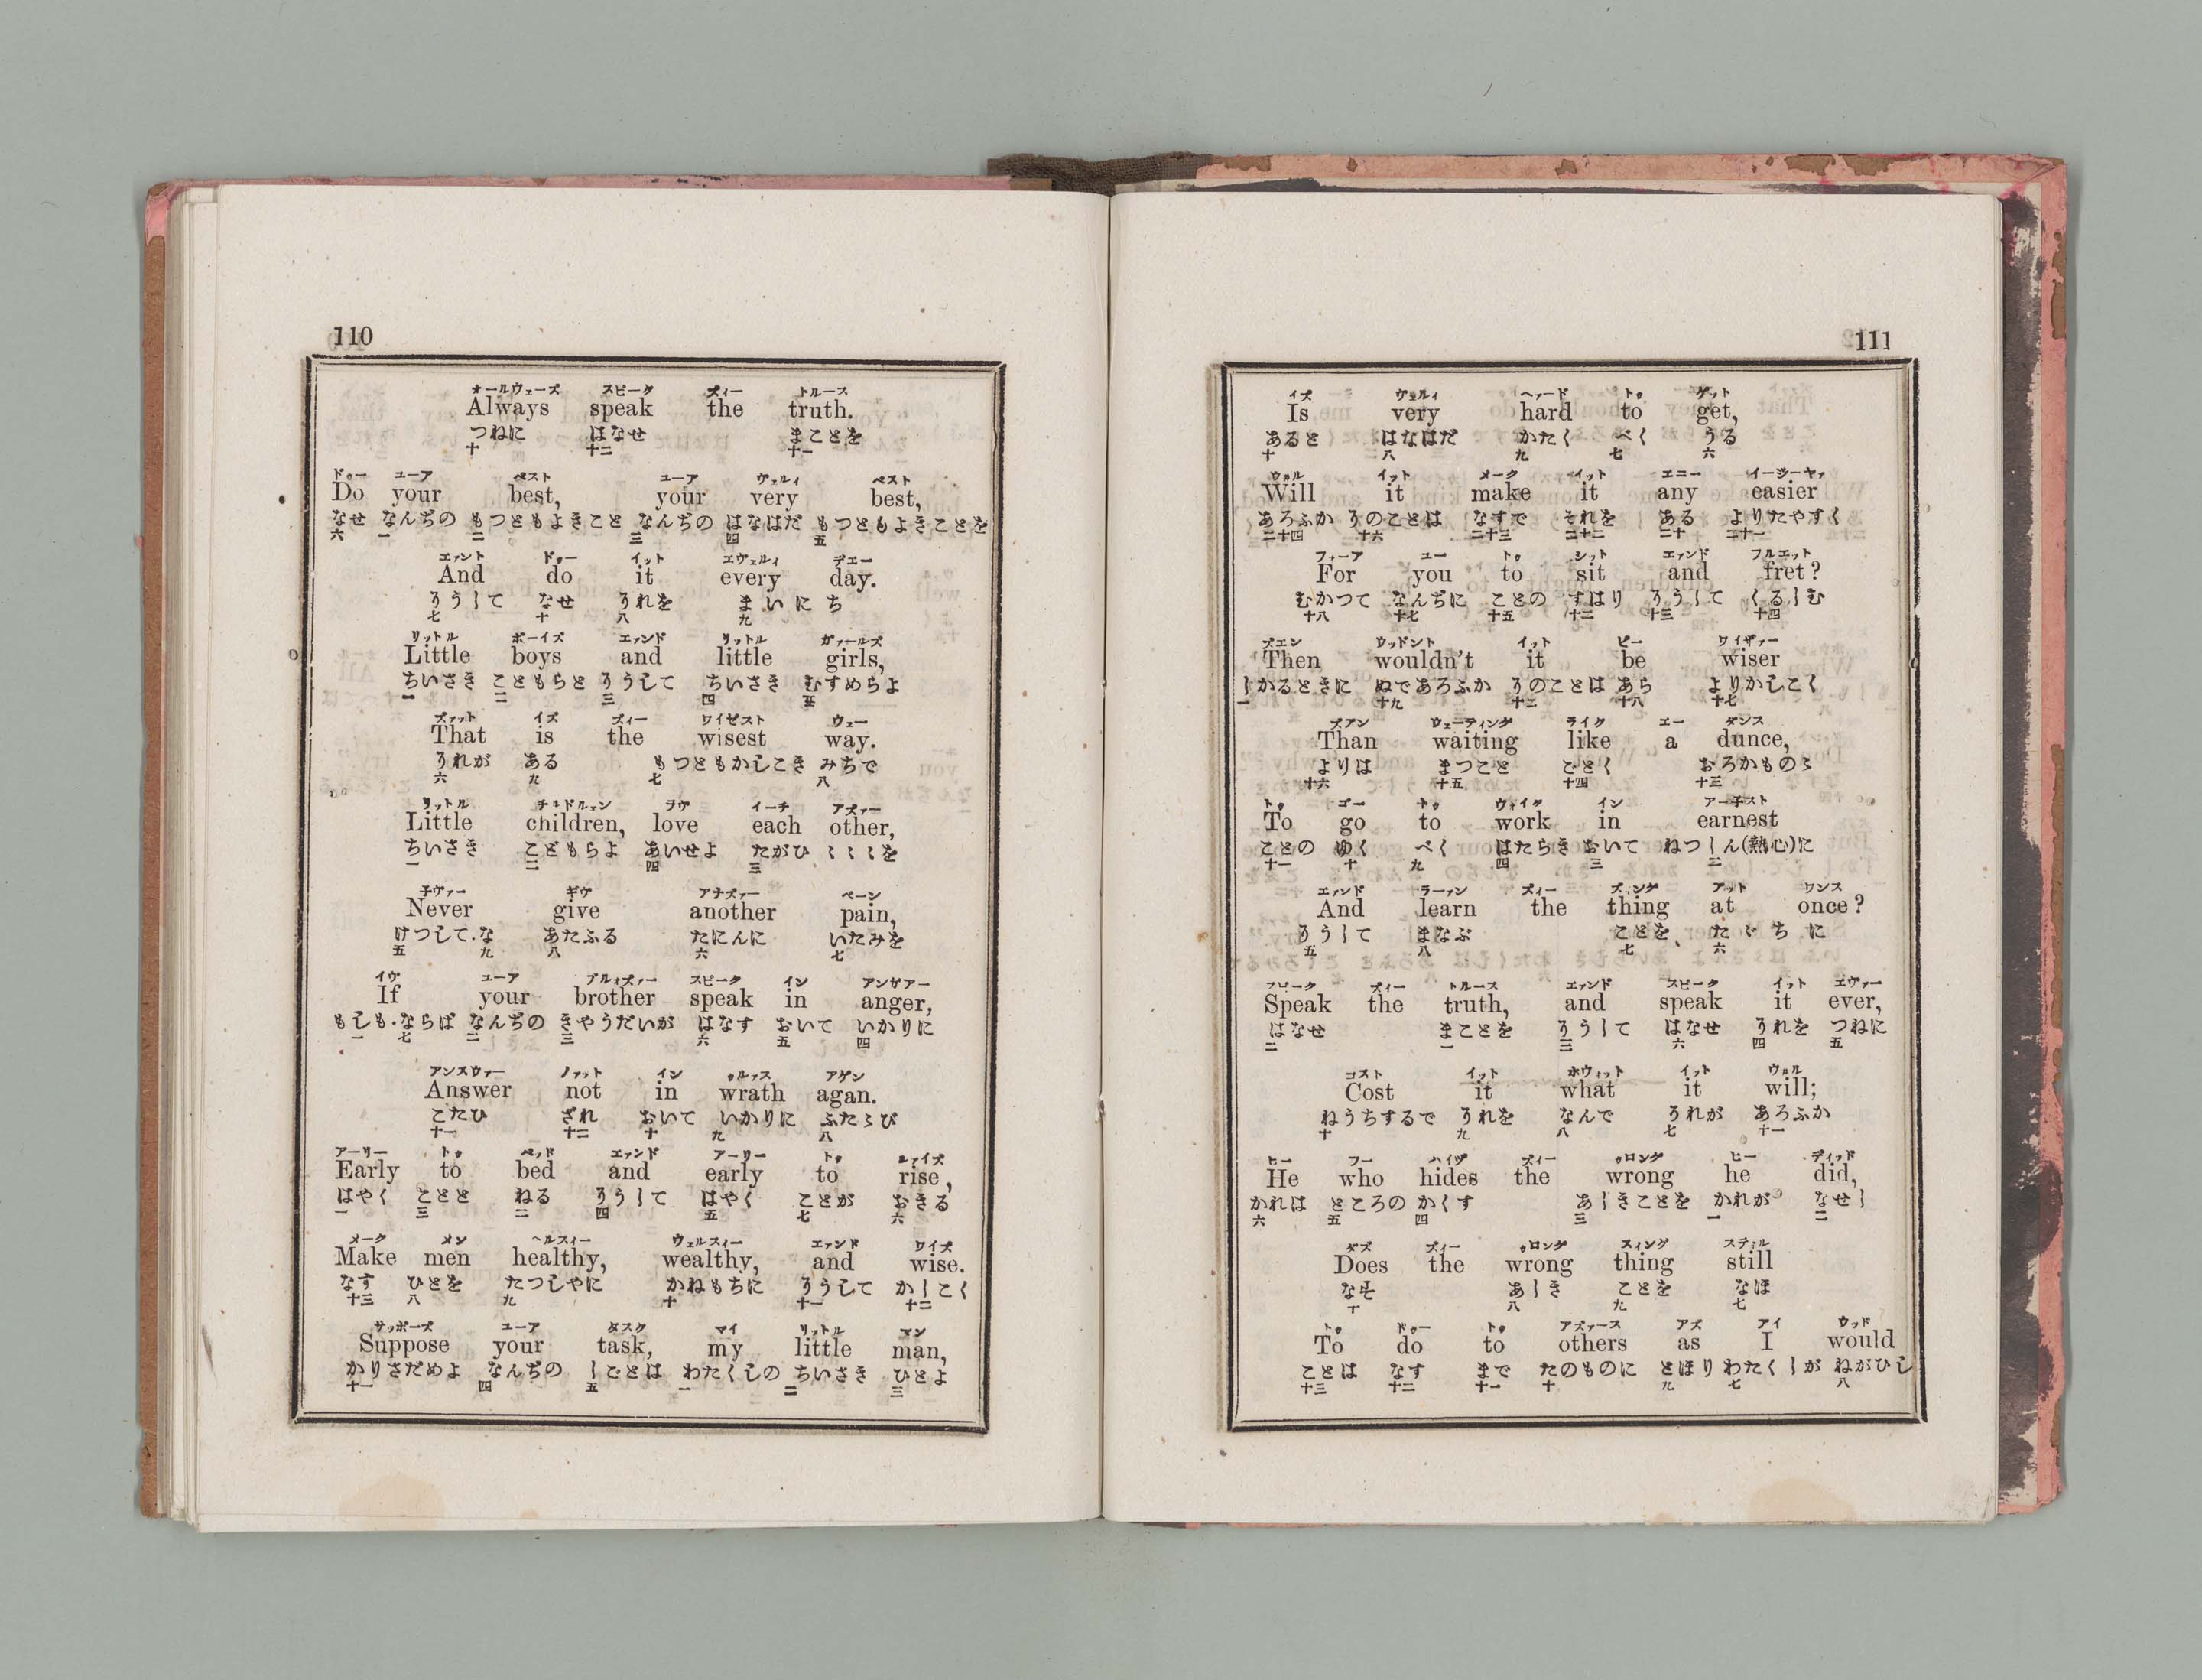 110
オールウェーズ スピーク ズィー トルース
Always speak the truth.
つねに はなせ まことを
十 十二 十一
ドゥー ユーア ベスト ユーア ヴェルィ ベスト
Do your best, your very best,
なせ なんぢの もつともよきこと なんぢの はなはだ もつともよきことを
六 一 二 三 四 五
エァント ドゥー イット エヴェルィ デエー
And do it every day.
そうして なせ それを まいにち
七 十 八 九
リットル ボーイズ エァンド リットル ガァールズ
Little boys and little girls,
ちいさき こどもらと そうして ちいさき むすめらよ
一 二 三 四 五
ズァット イズ ズィー ワイゼスト ウェー
That is the wisest way.
それが ある もつともかしこき みちで
六 九 七 八
リットル チ井ドルェン ラヴ イーチ アズァー
Little children, love each other,
ちいさき こどもらよ あいせよ たがひ 〻〻〻を
一 二 四 三
子ヴァー ギヴ アナズァー ペーン
Never give another pain,
けつして.な あたふる たにんに いたみを
五 九 八 六 七
イヴ ユーア ブルォズァー スピーク イン アンガアー
If your brother speak in anger,
もしも.ならば なんぢの きやうだいが はなす おいて いかりに
一 七 二 三 六 五 四
アンスウァー ノァット イン ゥルァス アゲン
Answer not in wrath agan.
こたひ ざれ おいて いかりに ふたゝび
十一 十二 十 九 八
アーリー トゥ ベッド エァンド アーリー トゥ ルァイズ
Early to bed and early to rise,
はやく ことと ねる そうして はやく ことが おきる
一 三 二 四 五 七 六
メーク メン ヘルスィー ウェルスィー エァンド ワイズ
Make men healthy, wealthy, and wise.
なす ひとを たつしやに かねもちに そうして かしこく
十三 八 九 十 十一 十二
サッポーズ ユーア タスク マイ リットル マン
Suppose your task, my little man,
かりさだめよ なんぢの しごとは わたくしの ちいさき ひとよ
十一 四 五 一 二 三
111
イズ ヴェルィ ヘァード トゥ ゲット
Is very hard to get,
あると はなはだ かたく べく うる
十 八 九 七 六
ウォル イット メーク イット エニー イージーヤァ
Will it make it any easier
あろふか そのことは なすで それを ある よりたやすく
二十四 十六 二十三 二十二 二十 二十一
フォーア ユー トゥ シット エァンド フルエット
For you to sit and fret?
むかつて なんぢに ことの すはり そうして くるしむ
十八 十七 十五 十二 十三 十四
ズエン ウッドント イット ビー ワイザァー
Then wouldn't it be wiser
しかるときに ぬであろふか そのことは あら よりかしこく
一 十九 十二 十八 十七
ズアン ウェーティング ライク エー ダンス
Than waiting like a dunce,
よりは まつこと ごとく おろかものゝ
十六 十五 十四 十三
トゥ ゴー トゥ ウォイク イン アー子スト
To go to work in earnest
ことの ゆく べく はたらき おいて ねつしん(熱心)に
十一 十 九 四 三 二
エァンド ラーァン ズィー ズィング アット ワンス
And learn the thing at once?
そうして まなぶ ことを、 たゞちに
五 八 七 六
スピーク ズィー トルース エァンド スピーク イット エヴァー
Speak the truth, and speak it ever,
はなせ まことを そうして はなせ それを つねに
二 一 三 六 四 五
コスト イット ホウィット イット ウォル
Cost it what it will;
ねうちするで それを なんで それが あろふか
十 九 八 七 十一
ヒー フー ハイヅ ズィー ゥロング ヒー ディッド
He who hides the wrong he did,
かれは ところの かくす あしきことを かれが なせし
六 五 四 三 一 二
ダズ ズィー ゥロング スィング スティル
Does the wrong thing still
なす あしき ことを なほ
十 八 九 七
トゥ ドゥー トゥ アズァース アズ アイ ウッド
To do to others as I would
ことは なす まで たのものに とほり わたくしが ねがひし
十三 十二 十一 十 九 七 八